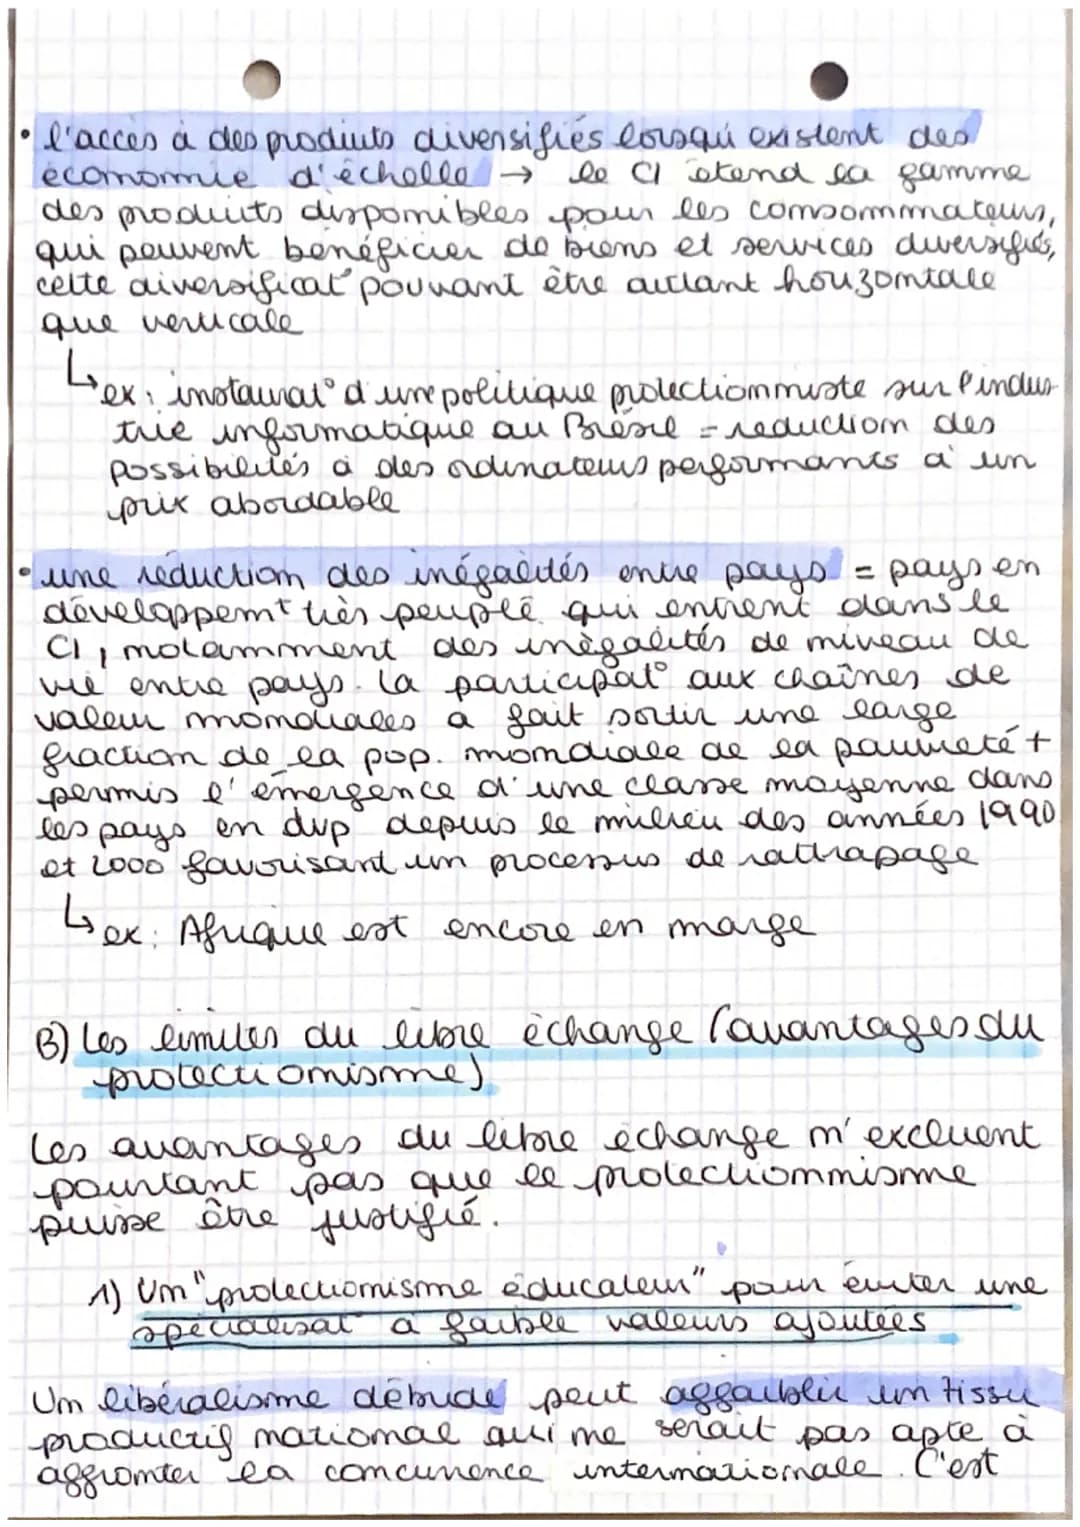 • l'accès à des produits diversifiés lorsqu'existent des
économie d'échelle → le CI étend la gamme
des produits disponibles pour les consommateurs,
qui peuvent bénéficier de biens et services diversifiés,
cette diversificat° pouvant être autant horizontale
que verticale
↳ ex: instaurat° d'une politique protectionniste sur l'indus-
trie informatique au Brésil = reduction des
possibilités à des ordinateurs performants à un
prix abordable
• une réduction des inégalités entre pays = pays en
développemt très peuplé qui entrent dans le
CI, notamment des inégalités de niveau de
vie entre pays. La participat° aux chaînes de
valeur mondiales a fait sortir une large
fraction de la pop. mondiale de la pauvreté +
permis l'émergence d'une classe moyenne dans
les pays en dvp depuis le milieu des années 1990
et 2000 favorisant un processus de rattrapage
↳ ex: Afrique est encore en marge
B) Les limites du libre échange (avantages du
protectionisme)
Les avantages du libre échange n'excluent
pourtant pas que le protectionnisme
puisse être justifié.
1) Un "protectionisme éducateur" pour éviter une
spécialisat° à faible valeurs ajoutées
Un libéralisme débridé peut affaiblir un tissu
productif national qui ne serait pas apte à
affronter la concurrence internationale. C'est